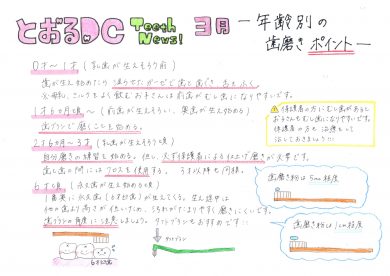 とおるDC Tooth News! 3月 ー年齢別の
歯磨きポイントー
0才〜1才(乳歯が生えそろう前)
歯が生え始めたら 湿らせたガーゼで歯と歯ぐきをふく
1才6ヵ月頃〜(前歯が生えそろい、奥歯が生え始める)
歯ブラシで磨くことを始める。
2才6ヵ月〜3才(乳歯が生えそろう頃)
自分磨きの練習を始める。但し、必ず保護者による仕上げ磨きが大事です。
歯と歯の間にはフロスを使用する。
6才頃(永久歯が生え始める頃)
1番奥に永久歯(6才臼歯)が生えてくる。生え途中は
他の歯より高さが低いため、汚れがたまりやすく磨きにくいです。
歯ブラシの角度に注意しましょう。ワンタフトブラシもおすすめです!
保護者の方にむし歯があると
お子さんもむし歯になりやすいです。
保護者の方も治療をして
治しておきましょう
歯磨き粉は5mm程度
歯磨き粉は1cm程度
6才臼歯